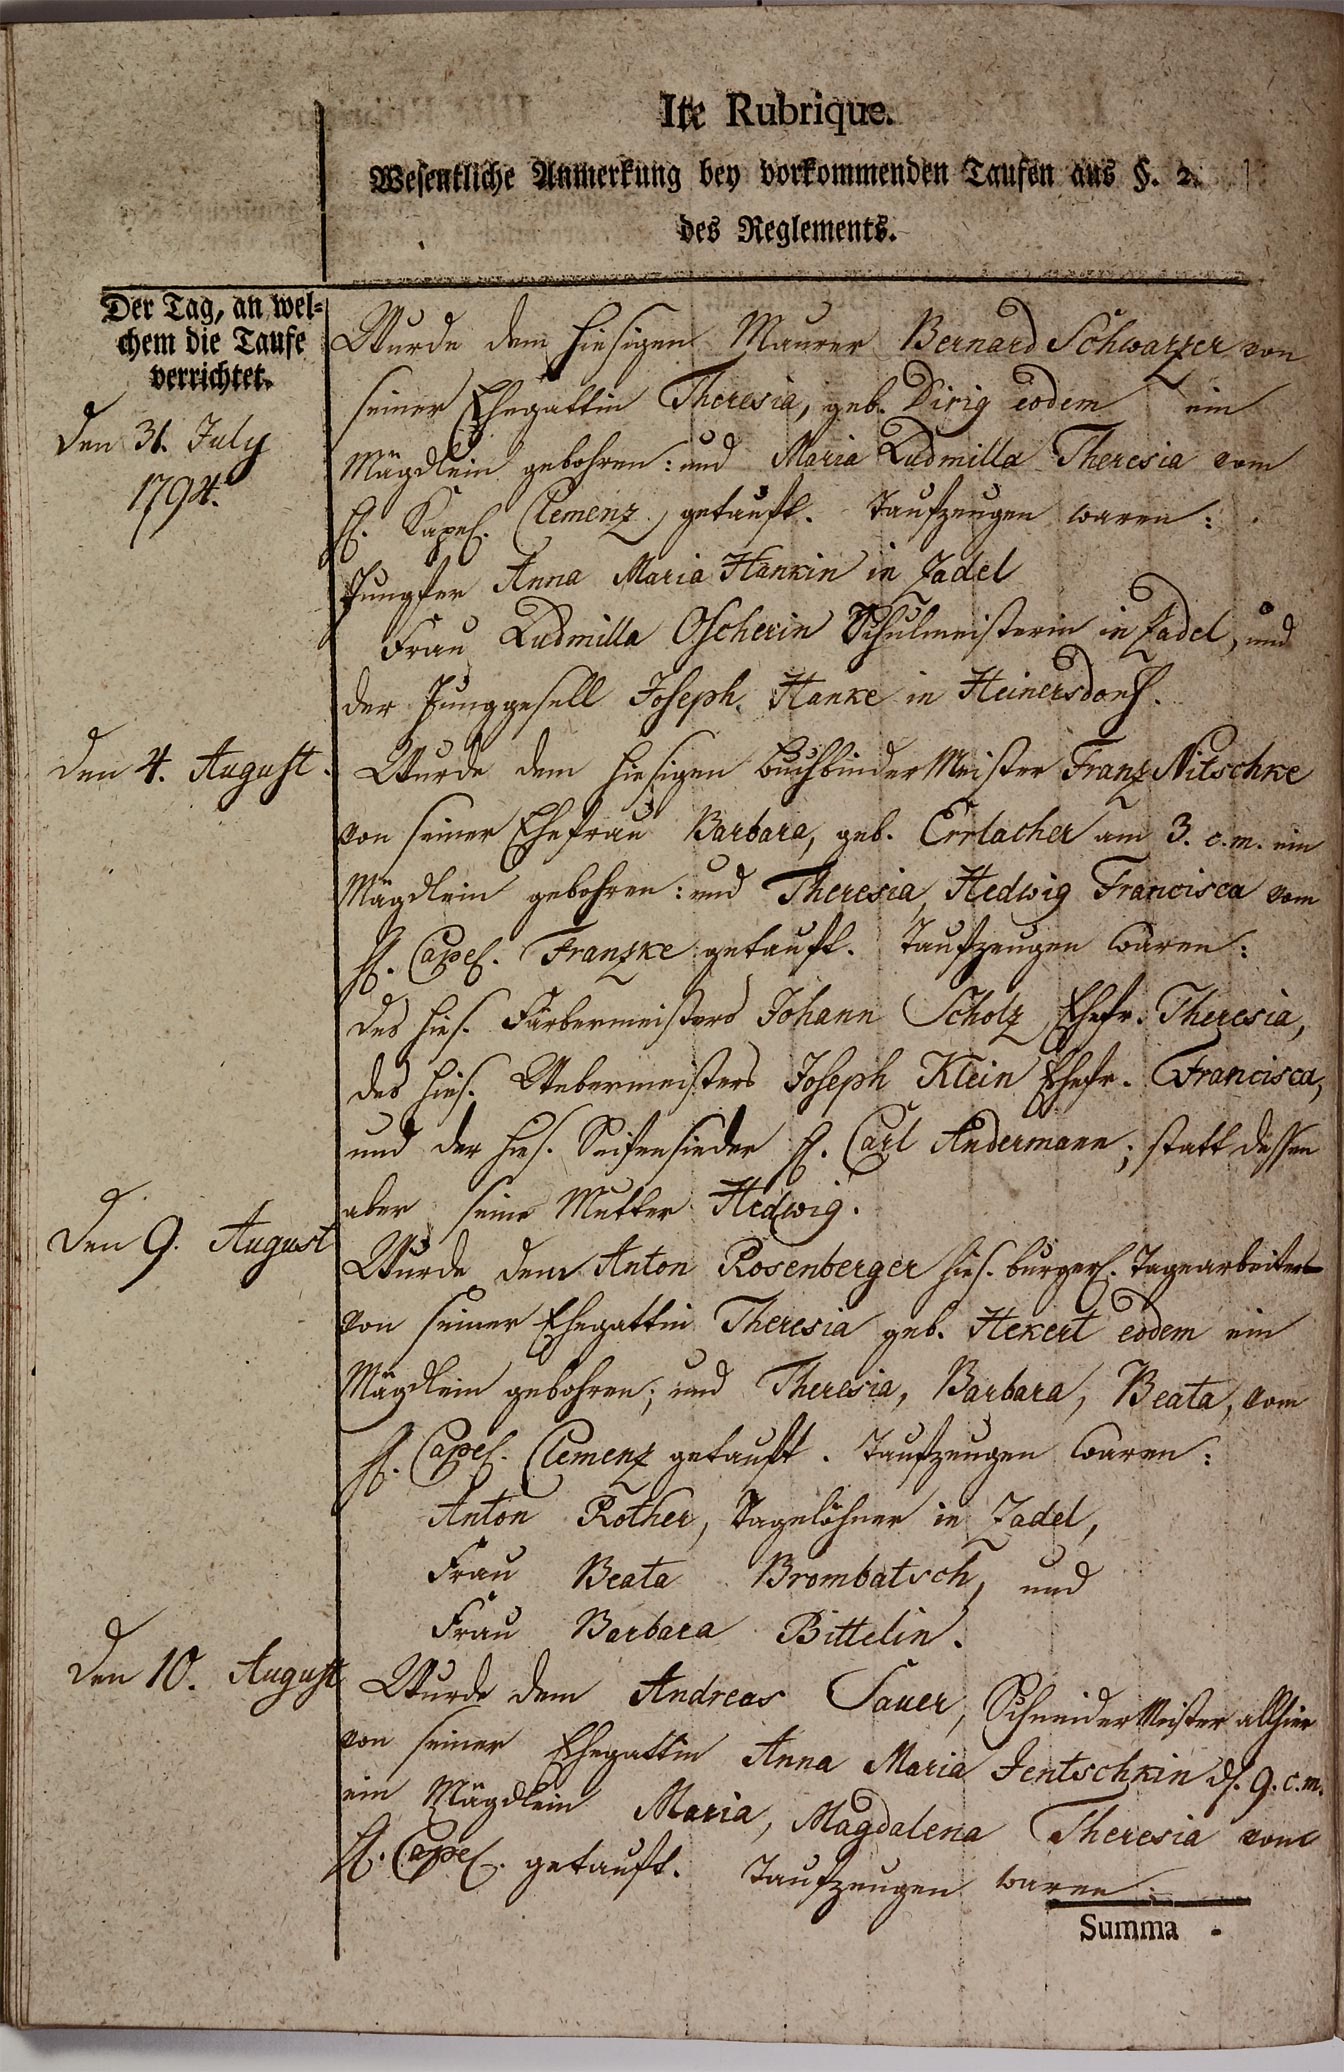 Ite Rubrique.
Wesentliche Anmerkung bey vorkommenden Taufen aus §. 2.
des Reglements.
Der Tag, an wel-
chem die Taufe
verrichtet.
Den 31. July
1794.
Wurde dem hiesigen Maurer Bernard Schwarzer von
seiner Ehegattin Theresia, geb. Dirig eodem ein
Mägdlein gebohren: und Maria Ludmilla Theresia vom
H. Kapel. Clemenz getauft. Taufzeugen waren:
Jungfer Anna Maria Hankin in Zadel
Frau Ludmilla Oscherin Schulmeisterin in Zadel, und
der Junggesell Joseph Hanke in Heinersdorf.
Den 4. August.
Wurde dem hiesigen Buchbinder Meister Franz Nitschke
von seiner Ehefrau Barbara, geb. Errlacher am 3. c. m. ein
Mägdlein gebohren: und Theresia, Hedwig Francisca vom
H. Capel. Franzke getauft. Taufzeugen waren:
des hies. Färbermeisters Johann Scholz Ehefr. Theresia,
des hies. Webermeisters Joseph Klein Ehefr. Francisca,
und der hies. Seifensieder H. Carl Andermann; statt dessen
aber seine Mutter Hedwig.
Den 9. August
Wurde dem Anton Rosenberger hies. burgerl. Tagearbeiter
von seiner Ehegattin Theresia geb. Hekert eodem ein
Mägdlein gebohren; und Theresia, Barbara, Beata, vom
H. Capel. Clemenz getauft. Taufzeugen waren:
Anton Rother, Tagelöhner in Zadel,
Frau Beata Brombatsch, und
Frau Barbara Bittelin.
Den 10. August
Wurde dem Andreas Sauer, Schneider Meister allhier
von seiner Ehegattin Anna Maria Jentschkin d. 9. c. m.
ein Mägdlein Maria, Magdalena Theresia vom
H. Capel. getauft. Taufzeugen waren:
Summa